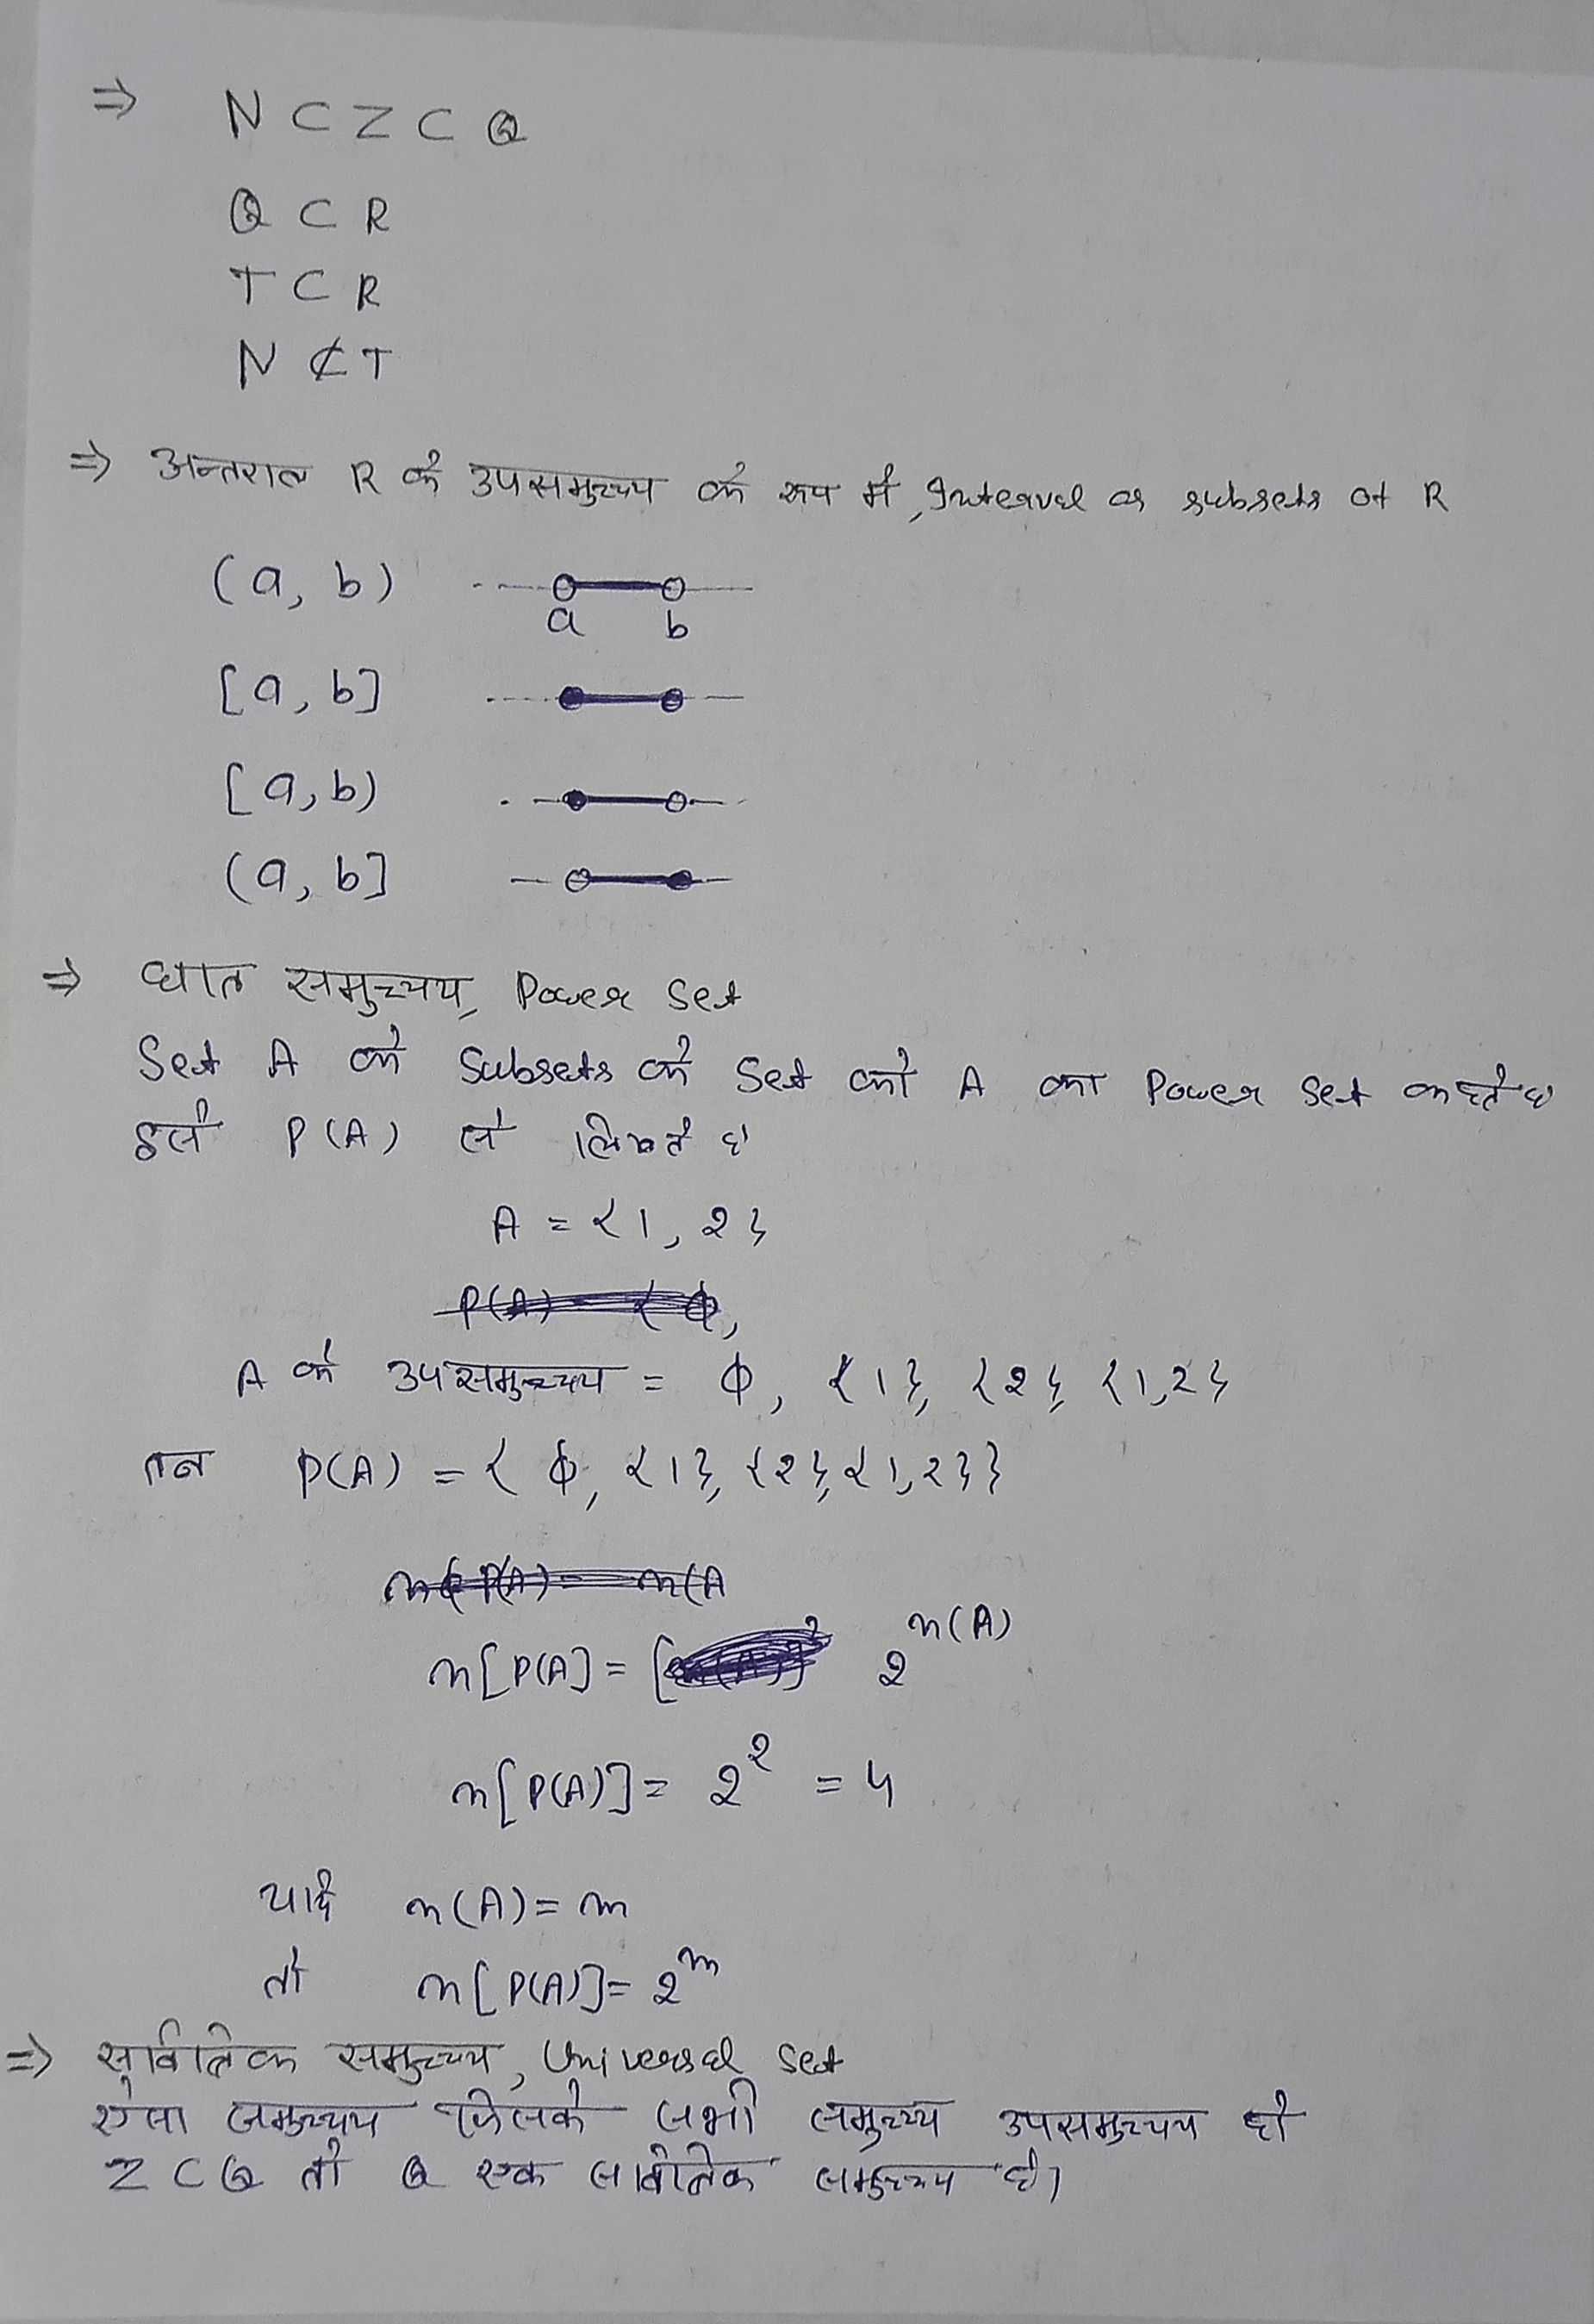 ⇒ N ⊂ Z ⊂ Q
Q ⊂ R
T ⊂ R
N ⊄ T
⇒ अन्तराल R के उपसमुच्चय के रूप में, Interval as subsets of R
(a, b)
a b
[a, b]
[a, b)
(a, b]
⇒ घात समुच्चय, Power Set
Set A के Subsets के Set को A का Power Set कहते है
इसे P(A) से लिखते है
A = {1, 2}
P(A) = { ϕ,
A के उपसमुच्चय = ϕ, {1}, {2}, {1,2}
तब P(A) = { ϕ, {1}, {2}, {1,2}}
n[P(A] = [ 2^n(A)
n[P(A)] = 2^2 = 4
यदि n(A) = m
तो n[P(A)] = 2^m
⇒ सार्वत्रिक समुच्चय, Universal Set
ऐसा समुच्चय जिसके सभी समुच्चय उपसमुच्चय हो
Z ⊂ Q तो Q एक सार्वत्रिक समुच्चय है।